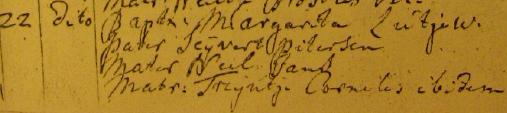 22 dito Bapt: Margarita Lütjew.
pater Seÿvert pitersen
Mater Neel Jans
Matr: Trÿntje Cornelis ibidem